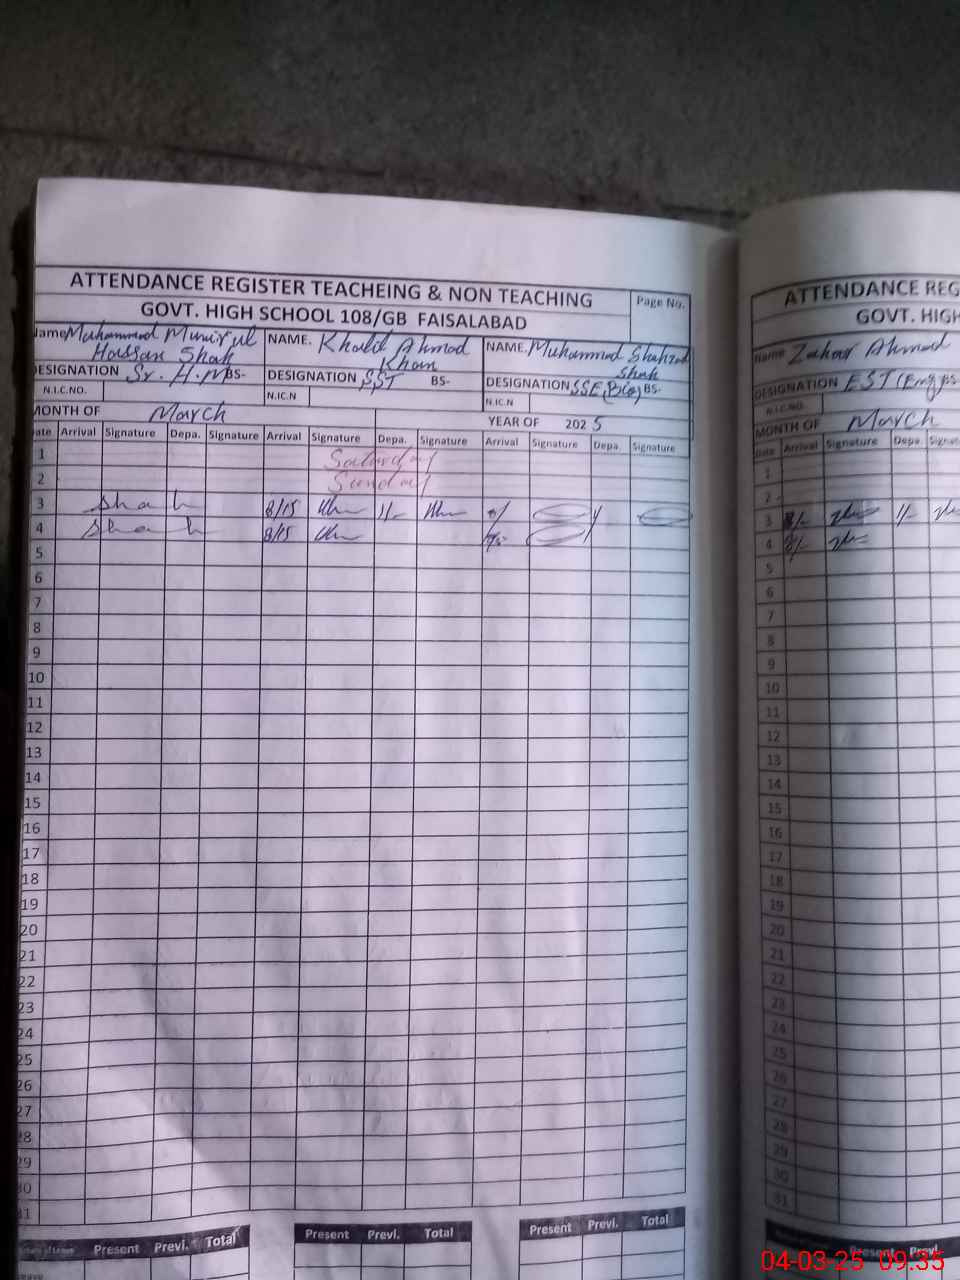 ATTENDANCE REGISTER TEACHEING & NON TEACHING
Page No.
GOVT. HIGH SCHOOL 108/GB FAISALABAD
Name Muhammad Munir ul Hassan Shah
NAME. Khalid Ahmad Khan
NAME. Muhammad Shahzad Shah
DESIGNATION Sr. H.M BS-
DESIGNATION SST BS-
DESIGNATION SSE(Bio) BS-
N.I.C.NO.
N.I.C.N
N.I.C.N
MONTH OF March
YEAR OF 2025
Date Arrival Signature Depa. Signature Arrival Signature Depa. Signature Arrival Signature Depa. Signature
1 Saturday
2 Sunday
3 Shah 8/15 1/-
4 Shah 8/15
5
6
7
8
9
10
11
12
13
14
15
16
17
18
19
20
21
22
23
24
25
26
27
28
29
30
31
Present Previ. Total
Present Previ. Total
Present Previ. Total
ATTENDANCE REG
GOVT. HIGH
Name Zahoor Ahmad
DESIGNATION EST(Eng) BS-
N.I.C.NO.
MONTH OF March
Date Arrival Signature Depa. Signat
1
2
3 8/- 1/-
4 8/-
5
6
7
8
9
10
11
12
13
14
15
16
17
18
19
20
21
22
23
24
25
26
27
28
29
30
31
Present Previ.
04-03-25 09:35